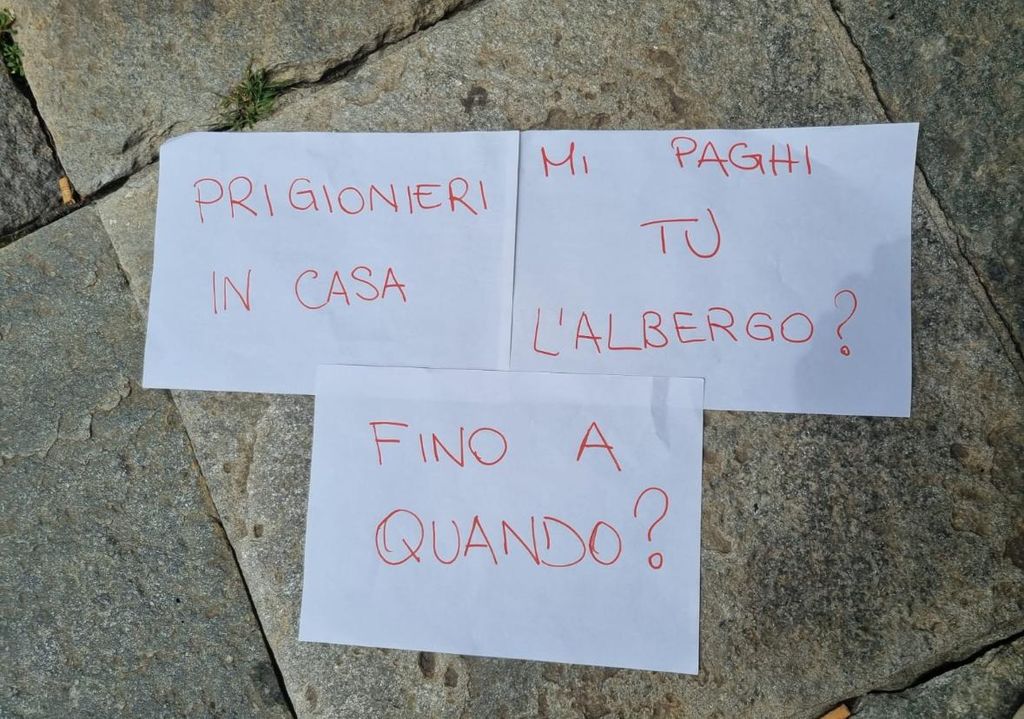 PRIGIONIERI
IN CASA
MI PAGHI
TU
L'ALBERGO?
FINO A
QUANDO?